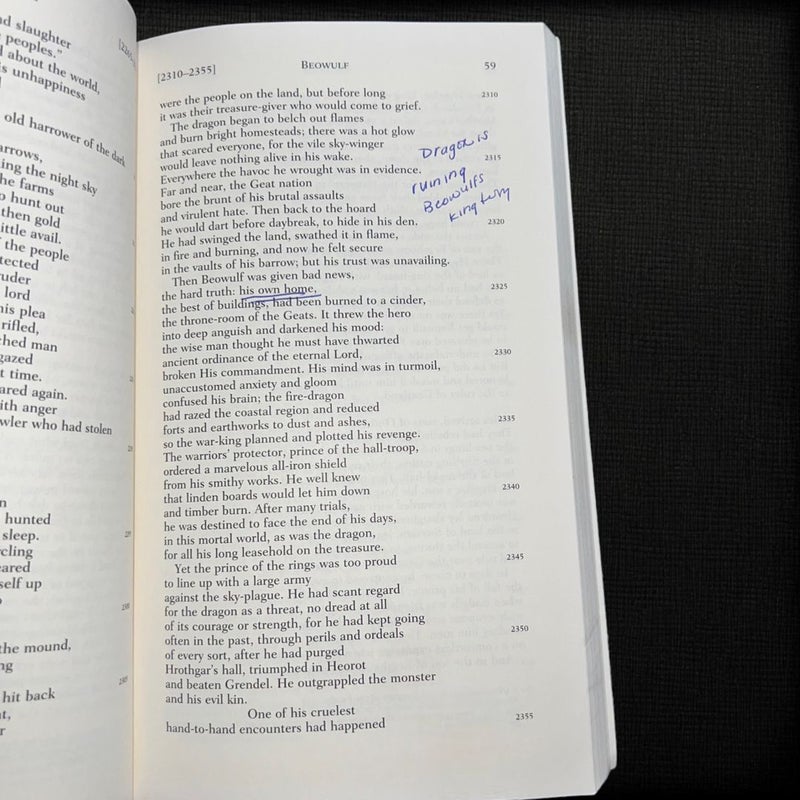 nd slaughter
peoples."
about the world,
s unhappiness
old harrower of the dark
arrows,
ing the night sky
he farms
o hunt out
then gold
ittle avail.
f the people
tected
uder
lord
nis plea
rifled,
ched man
gazed
t time.
ared again.
ith anger
wler who had stolen
n
hunted
sleep.
cling
eared
self up
the mound,
ng
hit back
ut,
r
[2310–2355]
BEOWULF
59
were the people on the land, but before long
2310
it was their treasure-giver who would come to grief.
The dragon began to belch out flames
and burn bright homesteads; there was a hot glow
that scared everyone, for the vile sky-winger
would leave nothing alive in his wake.
2315
Everywhere the havoc he wrought was in evidence.
Far and near, the Geat nation
bore the brunt of his brutal assaults
and virulent hate. Then back to the hoard
he would dart before daybreak, to hide in his den.
2320
He had swinged the land, swathed it in flame,
in fire and burning, and now he felt secure
in the vaults of his barrow; but his trust was unavailing.
Then Beowulf was given bad news,
the hard truth: his own home,
2325
the best of buildings, had been burned to a cinder,
the throne-room of the Geats. It threw the hero
into deep anguish and darkened his mood:
the wise man thought he must have thwarted
ancient ordinance of the eternal Lord,
2330
broken His commandment. His mind was in turmoil,
unaccustomed anxiety and gloom
confused his brain; the fire-dragon
had razed the coastal region and reduced
forts and earthworks to dust and ashes,
2335
so the war-king planned and plotted his revenge.
The warriors' protector, prince of the hall-troop,
ordered a marvelous all-iron shield
from his smithy works. He well knew
that linden boards would let him down
2340
and timber burn. After many trials,
he was destined to face the end of his days,
in this mortal world, as was the dragon,
for all his long leasehold on the treasure.
Yet the prince of the rings was too proud
2345
to line up with a large army
against the sky-plague. He had scant regard
for the dragon as a threat, no dread at all
of its courage or strength, for he had kept going
often in the past, through perils and ordeals
2350
of every sort, after he had purged
Hrothgar's hall, triumphed in Heorot
and beaten Grendel. He outgrappled the monster
and his evil kin.
One of his cruelest
2355
hand-to-hand encounters had happened
Dragon is
ruining
Beowulfs